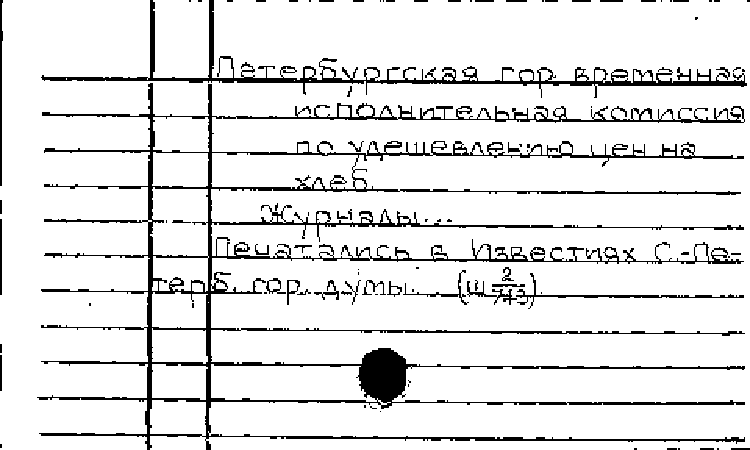 Петербургская гор временная
исполнительная комиссия
по удешевлению цен на
хлеб.
Журналы...
Печатались в Известиях С.-Пе-
терб. гор. думы. (Ш 2/